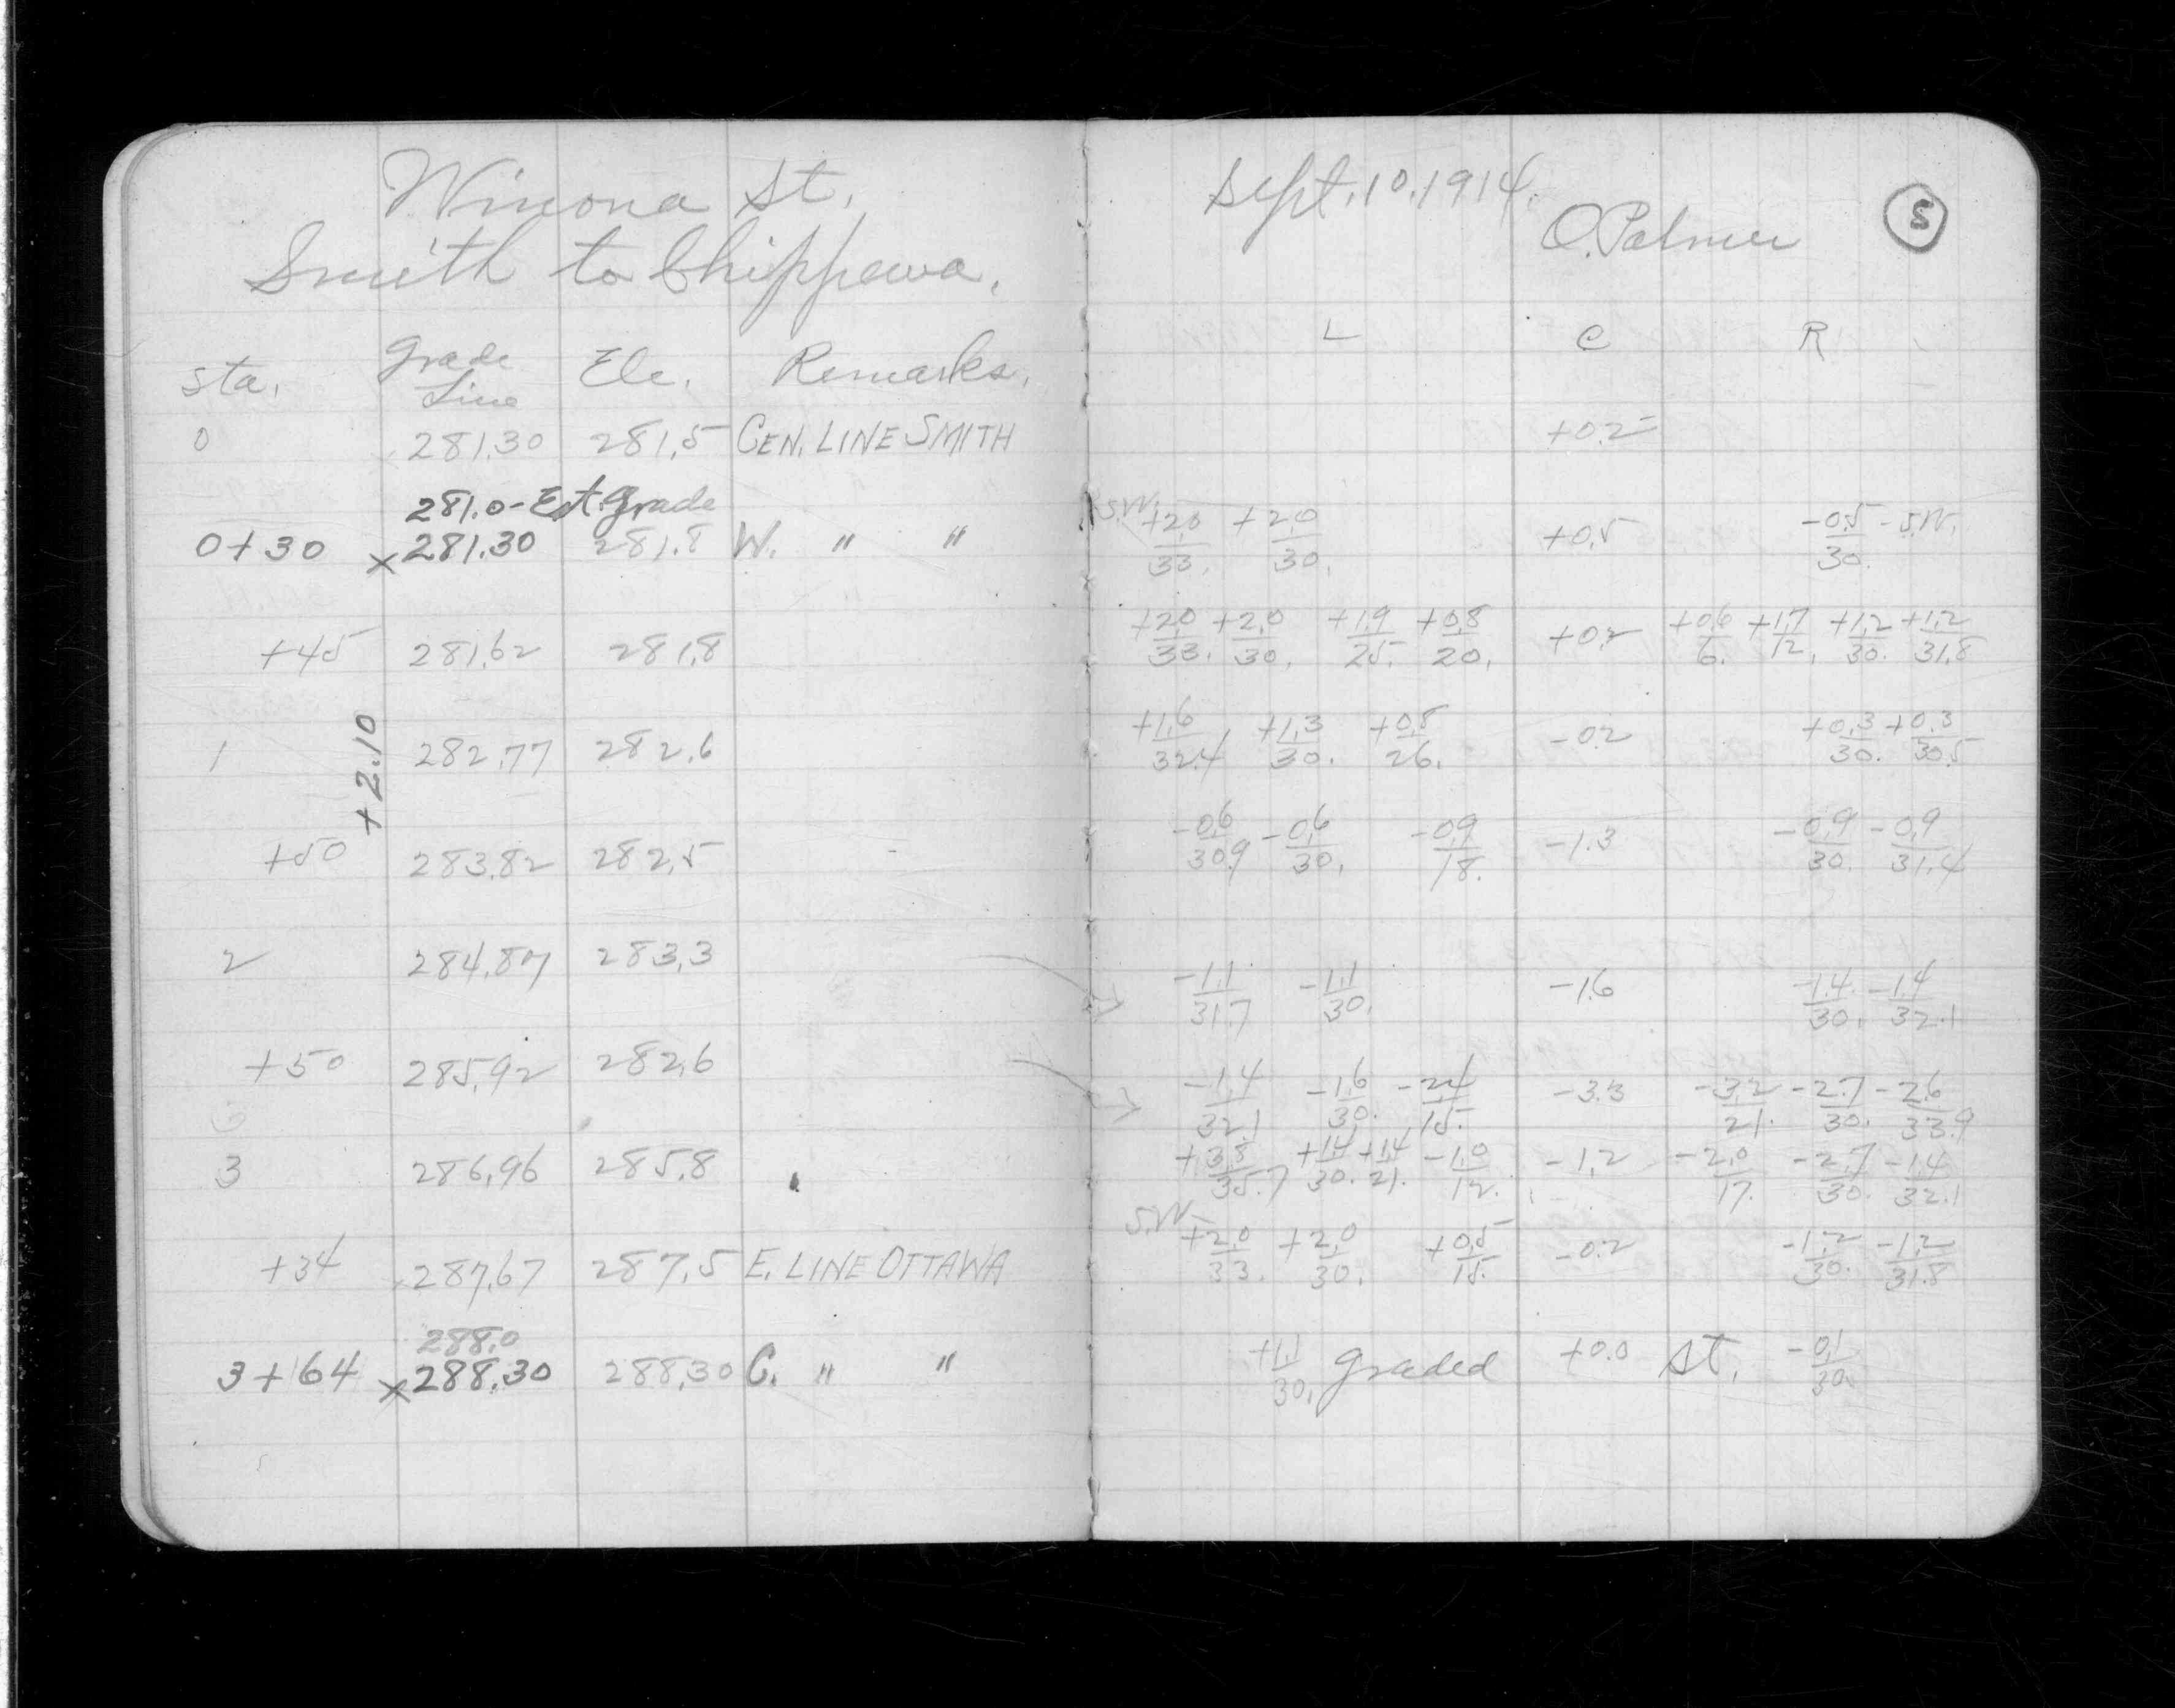 Winona St.
Smith to Chippewa.
Sta. Grade Line Ele. Remarks.
0 281.30 281.5 CEN. LINE SMITH
281.0 - Est. Grade
0+30 x 281.30 281.8 W. " "
+45 281.62 281.8
+2.10
1 282.77 282.6
+50 283.82 282.5
2 284.87 283.3
+50 285.92 282.6
3 286.96 285.8
+34 287.67 287.5 E. LINE OTTAWA
288.0
3+64 x 288.30 288.30 C. " "
Sept. 10. 1914.
O. Palmer
5
L C R
+0.2
S.W. +2.0/33. +2.0/30. +0.5 -0.5/30. - S.W.
+2.0/33. +2.0/30. +1.9/25. +0.8/20. +0.2 +0.6/6. +1.7/12. +1.2/30. +1.2/31.8
+1.6/32.4 +1.3/30. +0.8/26. -0.2 +0.3/30. +0.3/30.5
-0.6/30.9 -0.6/30. -0.9/18. -1.3 -0.9/30. -0.9/31.4
-1.1/31.7 -1.1/30. -1.6 -1.4/30. -1.4/32.1
-1.4/32.1 -1.6/30. -2.4/15. -3.3 -3.2/21. -2.7/30. -2.6/33.9
+3.8/35.7 +1.4/30. +1.4/21. -1.0/12. -1.2 -2.0/17. -2.7/30. -1.4/32.1
S.W. +2.0/33. +2.0/30. +0.5/15. -0.2 -1.2/30. -1.2/31.8
+1.1/30. graded +0.0 St. -0.1/30.